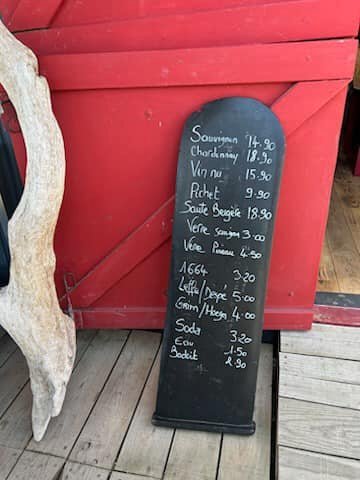 Sauvignon 14.90
Chardonnay 18.90
Vin nu 15.90
Pichet 9.90
Saute Bergère 18.90
Verre Sauvignon 3.00
Verre Pineau 4.50
1664 3.20
Leffe/Despé 5.00
Grim/Hoega 4.00
Soda 3.20
Eau 1.50
Badoit 2.90